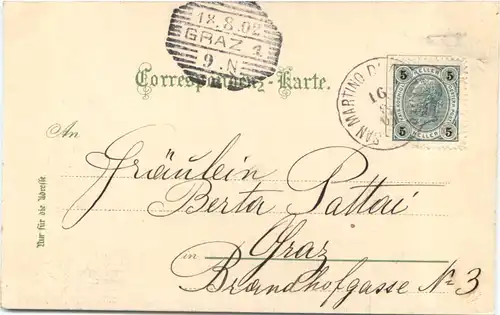 18.8.02
GRAZ 1
9.N
Correspondenz-Karte.
SAN MARTINO D
16
8
5 HELLER 5
5 HELLER 5
An
Fräulein
Berta Pattai
in Graz
Brandhofgasse No 3
Nur für die Adresse